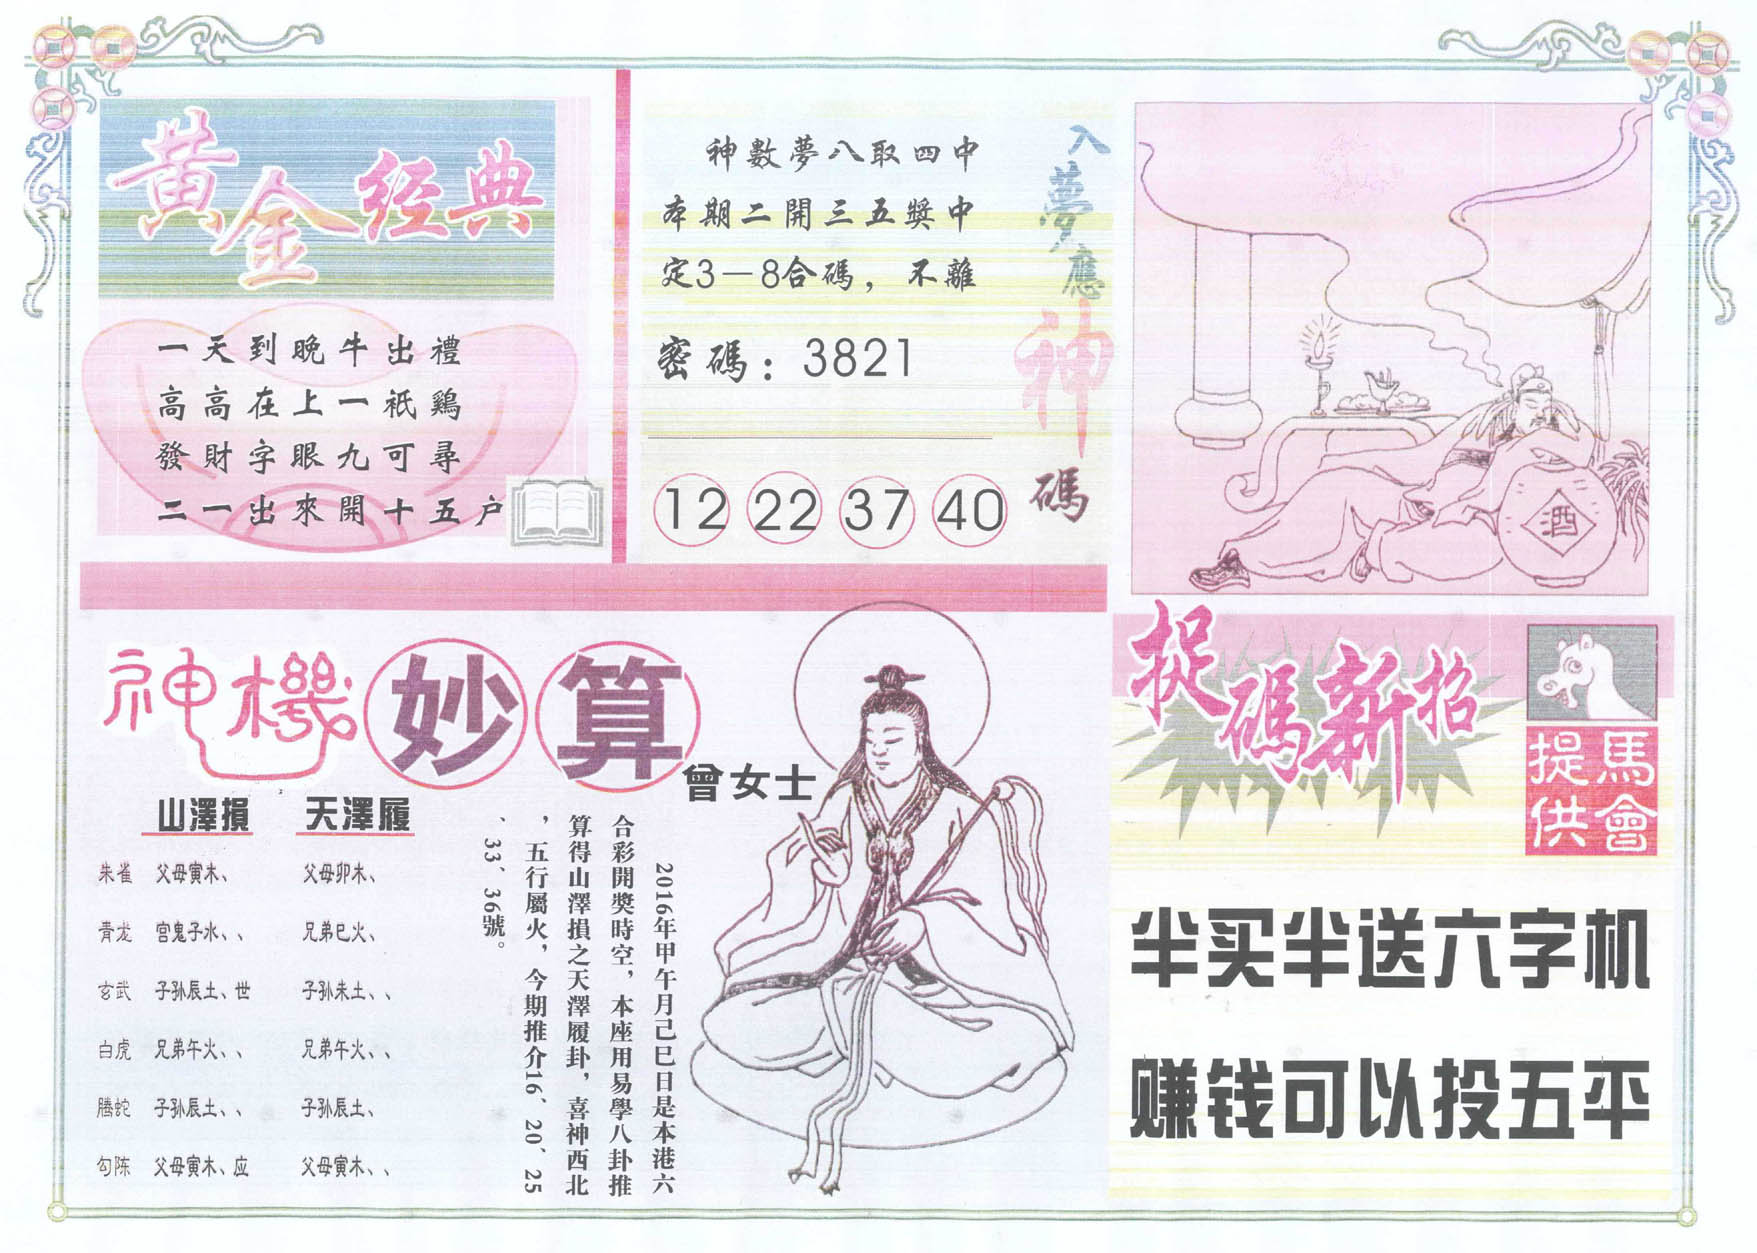 黃金经典
一天到晚牛出禮
高高在上一衹鷄
發財字眼九可尋
二一出來開十五户
神數夢八取四中
本期二開三五獎中
定3－8合碼，不離
密碼：3821
12 22 37 40
入夢應神碼
酒
神機妙算
曾女士
山澤損 天澤履
朱雀 父母寅木、 父母卯木、
青龙 官鬼子水、、 兄弟巳火、
玄武 子孙辰土、世 子孙未土、、
白虎 兄弟午火、、 兄弟午火、、
騰蛇 子孙辰土、、 子孙辰土、
勾陈 父母寅木、应 父母寅木、、
2016年甲午月己巳日是本港六
合彩開獎時空，本座用易學八卦推
算得山澤損之天澤履卦，喜神西北
，五行屬火，今期推介16、20、25
、33、36號。
捉碼新招
馬會
提供
半买半送六字机
赚钱可以投五平